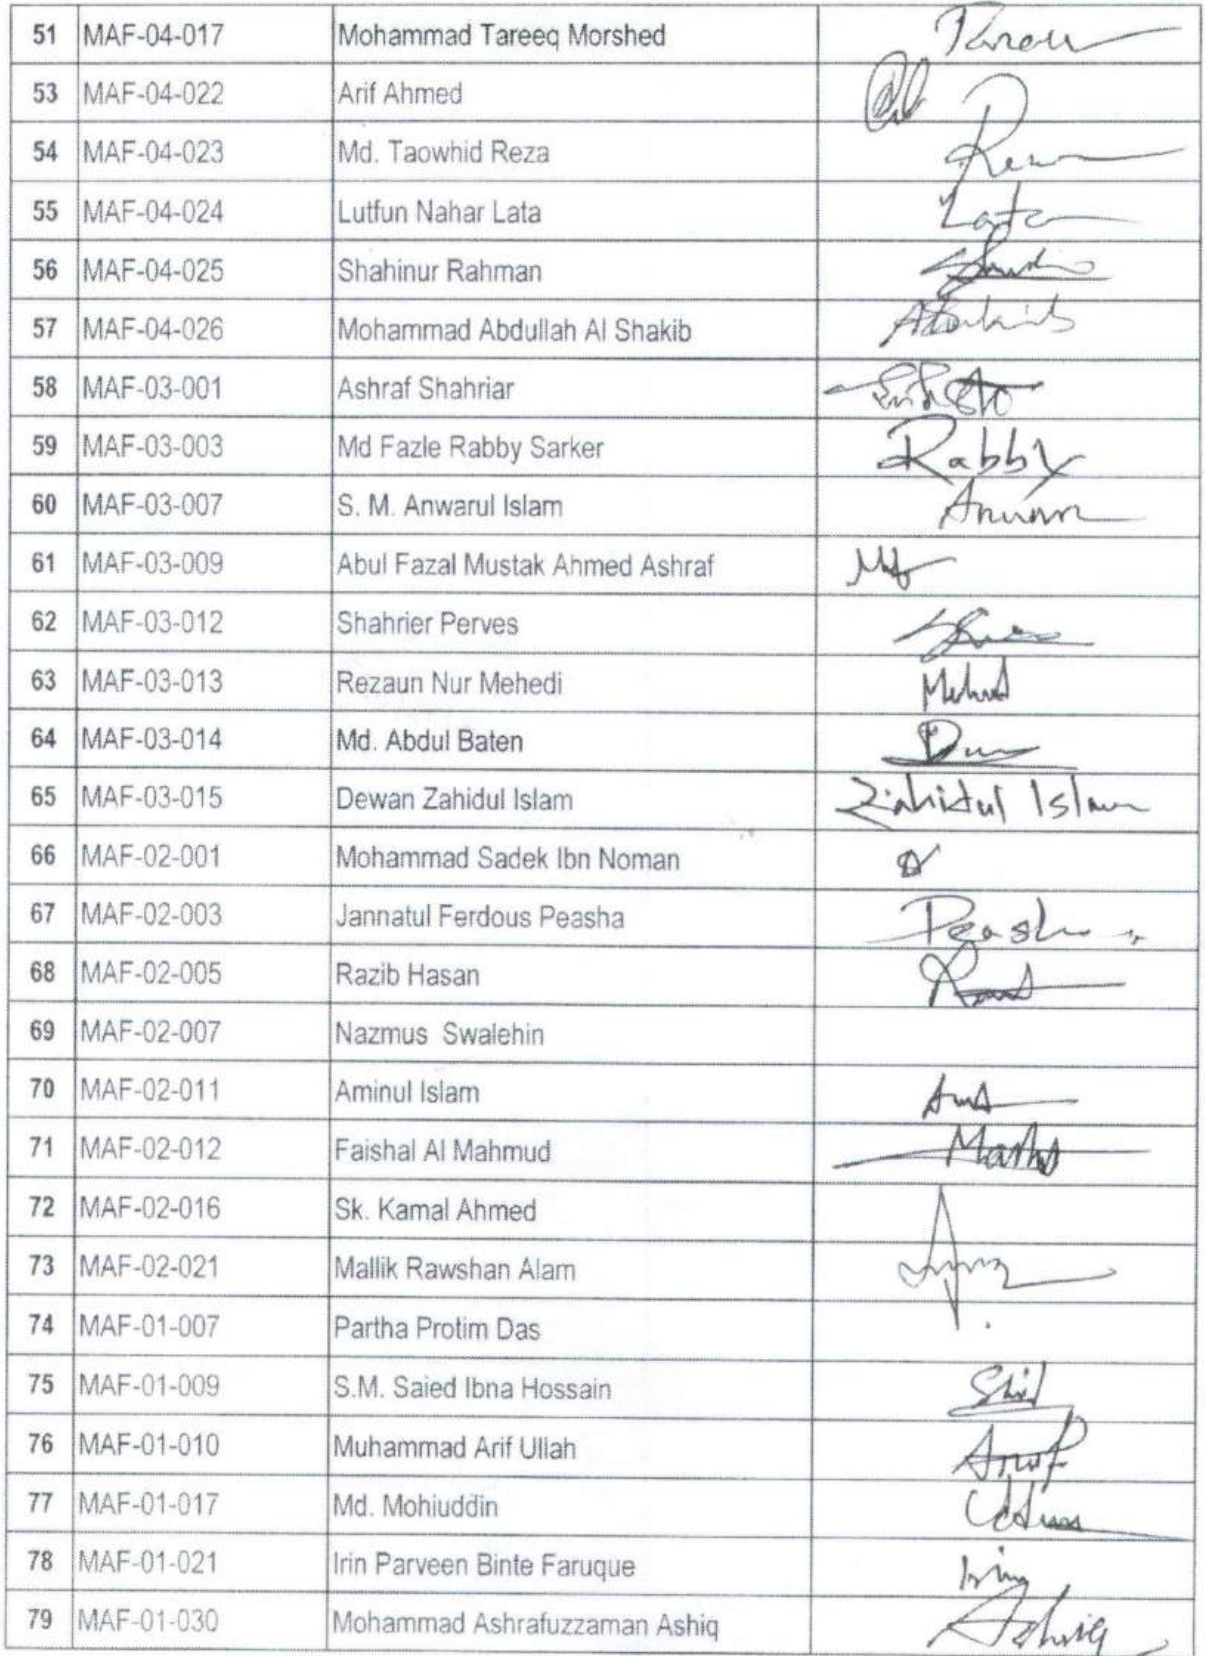 51 MAF-04-017 Mohammad Tareeq Morshed
53 MAF-04-022 Arif Ahmed
54 MAF-04-023 Md. Taowhid Reza
55 MAF-04-024 Lutfun Nahar Lata Lata
56 MAF-04-025 Shahinur Rahman
57 MAF-04-026 Mohammad Abdullah Al Shakib
58 MAF-03-001 Ashraf Shahriar
59 MAF-03-003 Md Fazle Rabby Sarker Rabby
60 MAF-03-007 S. M. Anwarul Islam
61 MAF-03-009 Abul Fazal Mustak Ahmed Ashraf
62 MAF-03-012 Shahrier Perves
63 MAF-03-013 Rezaun Nur Mehedi
64 MAF-03-014 Md. Abdul Baten
65 MAF-03-015 Dewan Zahidul Islam Zahidul Islam
66 MAF-02-001 Mohammad Sadek Ibn Noman
67 MAF-02-003 Jannatul Ferdous Peasha Peasha
68 MAF-02-005 Razib Hasan
69 MAF-02-007 Nazmus Swalehin
70 MAF-02-011 Aminul Islam
71 MAF-02-012 Faishal Al Mahmud
72 MAF-02-016 Sk. Kamal Ahmed
73 MAF-02-021 Mallik Rawshan Alam
74 MAF-01-007 Partha Protim Das
75 MAF-01-009 S.M. Saied Ibna Hossain
76 MAF-01-010 Muhammad Arif Ullah
77 MAF-01-017 Md. Mohiuddin
78 MAF-01-021 Irin Parveen Binte Faruque
79 MAF-01-030 Mohammad Ashrafuzzaman Ashiq Ashiq